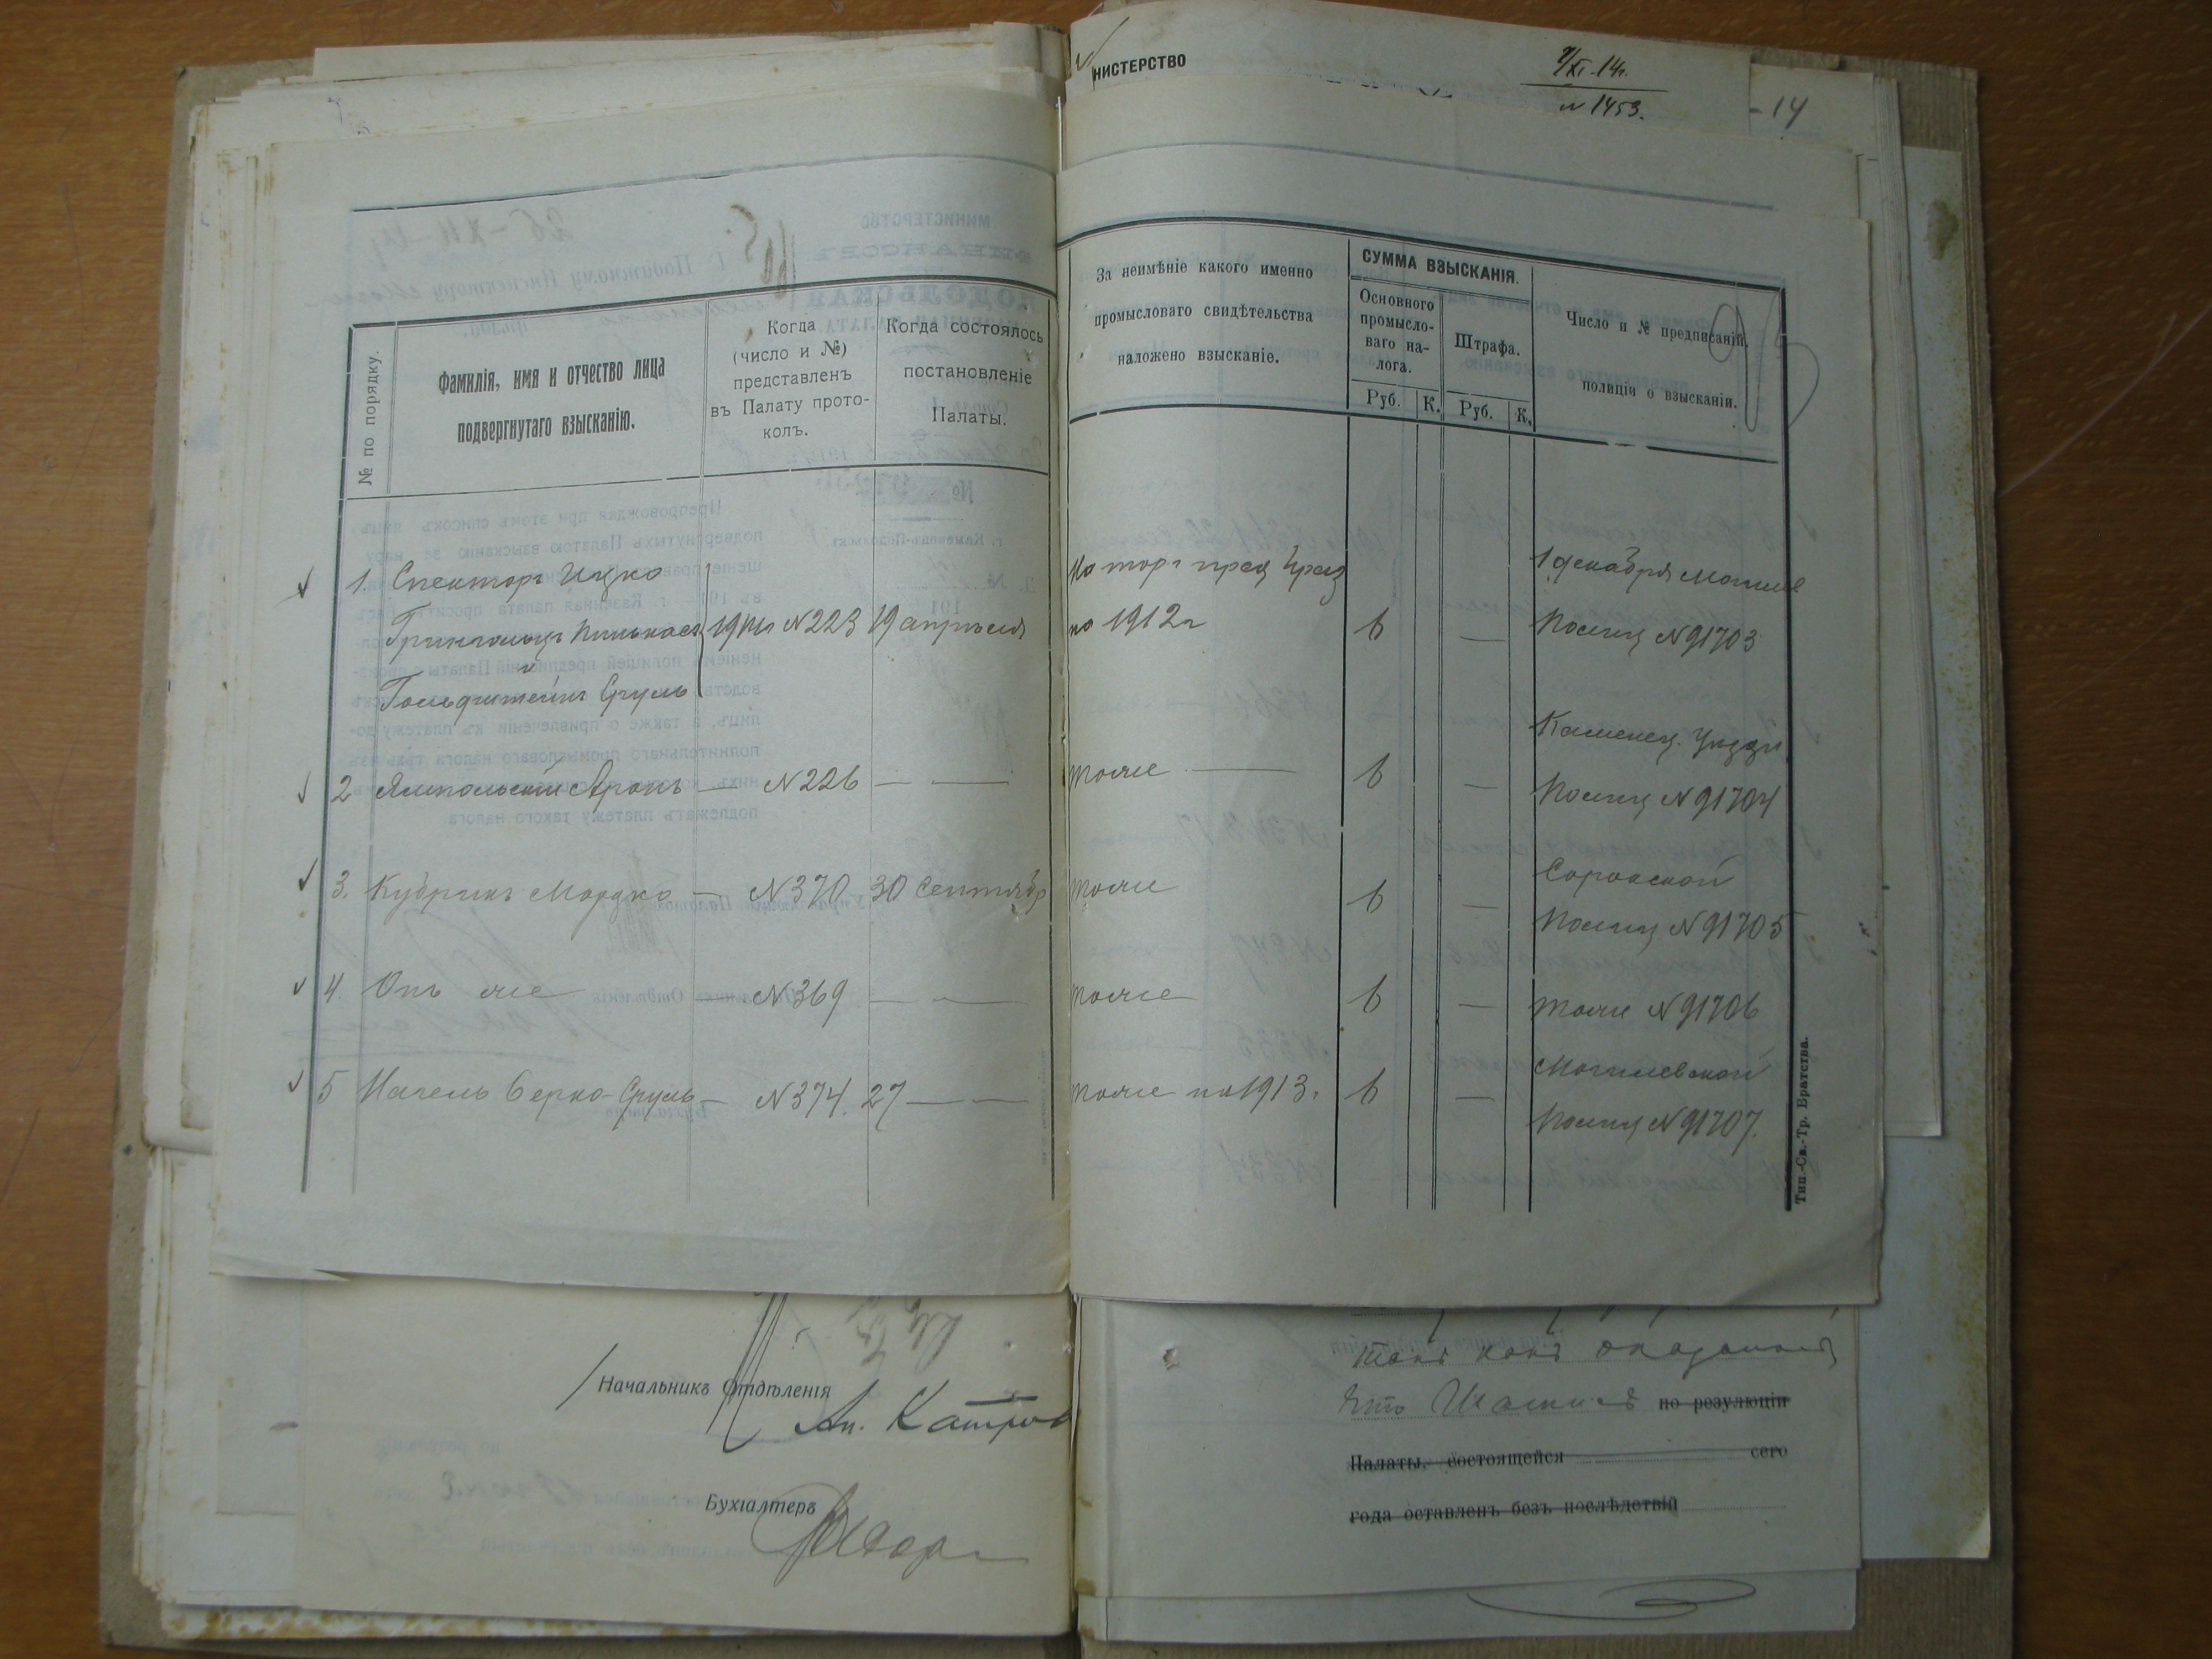 НИСТЕРСТВО
7/XI-14г.
№ 1453.
- 14
95
№ по порядку.
Фамилія, имя и отчество лица
подвергнутаго взысканію.
Когда
(число и №)
представленъ
въ Палату прото-
колъ.
Когда состоялось
постановленіе
Палаты.
За неимѣніе какого именно
промысловаго свидѣтельства
наложено взысканіе.
СУММА ВЗЫСКАНІЯ.
Основного
промысло-
ваго на-
лога.
Штрафа.
Руб. К. Руб. К.
Число и № предписаній
полиціи о взысканіи.
1. Спекторъ Ицко
Пинькасъ 19 № 223 19 апрѣля
и
Гольдштейнъ Сруль
на 1912 г 6 —
1 декабря Могилев
Полиц № 91703
2 Ямпольскій Аронъ — № 226 — — тоже — 6 —
Каменец. Уѣздн
Полиц № 91704
3. Кубрикъ Мордко — № 370 30 Сентябр тоже 6 —
Сорокской
Полиц № 91705
4. Онъ же № 369 — — тоже 6 — тоже № 91706
5 Берко-Сруль — № 374. 27 — — тоже на 1913. 6 —
Могилевской
Полиц № 91707.
Тип.-Св.-Тр. Братства.
Начальникъ Отдѣленія
Бухгалтеръ
такъ какъ
по резулюціи
Палаты, состоящейся сего
года оставленъ безъ послѣдствій